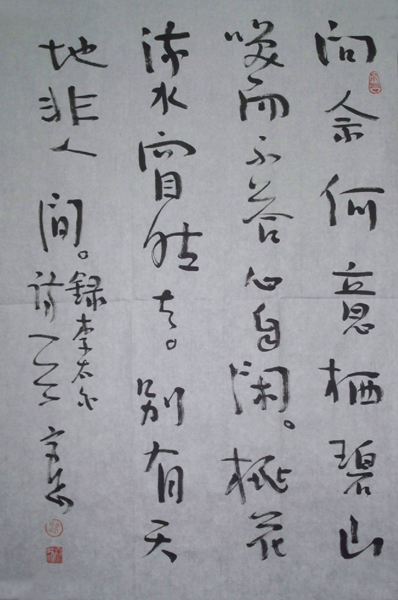 问余何意栖碧山
咲而不答心自闲。桃花
流水窅然去。别有天
地非人间。
録李太白
诗一首